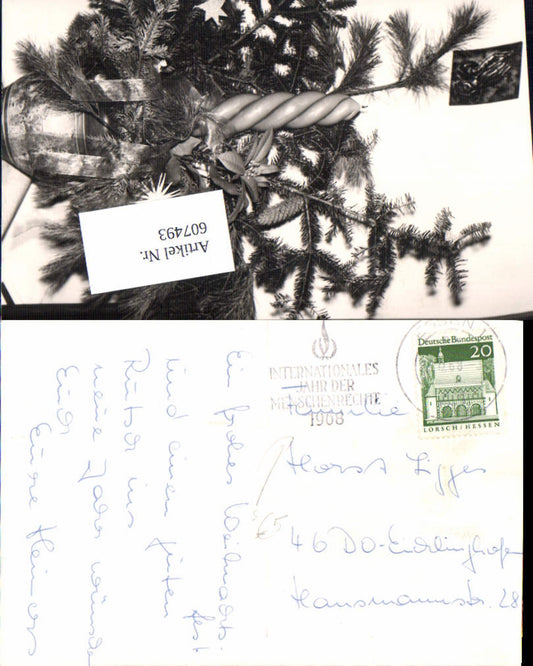 Artikel Nr.
607493
INTERNATIONALES
JAHR DER
MENSCHENRECHTE
1968
Deutsche Bundespost
20
LORSCH/HESSEN
Familie
Horst
46 DO-
Hansmannstr. 28
Ein frohes Weihnachts-
fest
und einen guten
Rutsch ins
neue Jahr wünscht
Euch
Eure
65